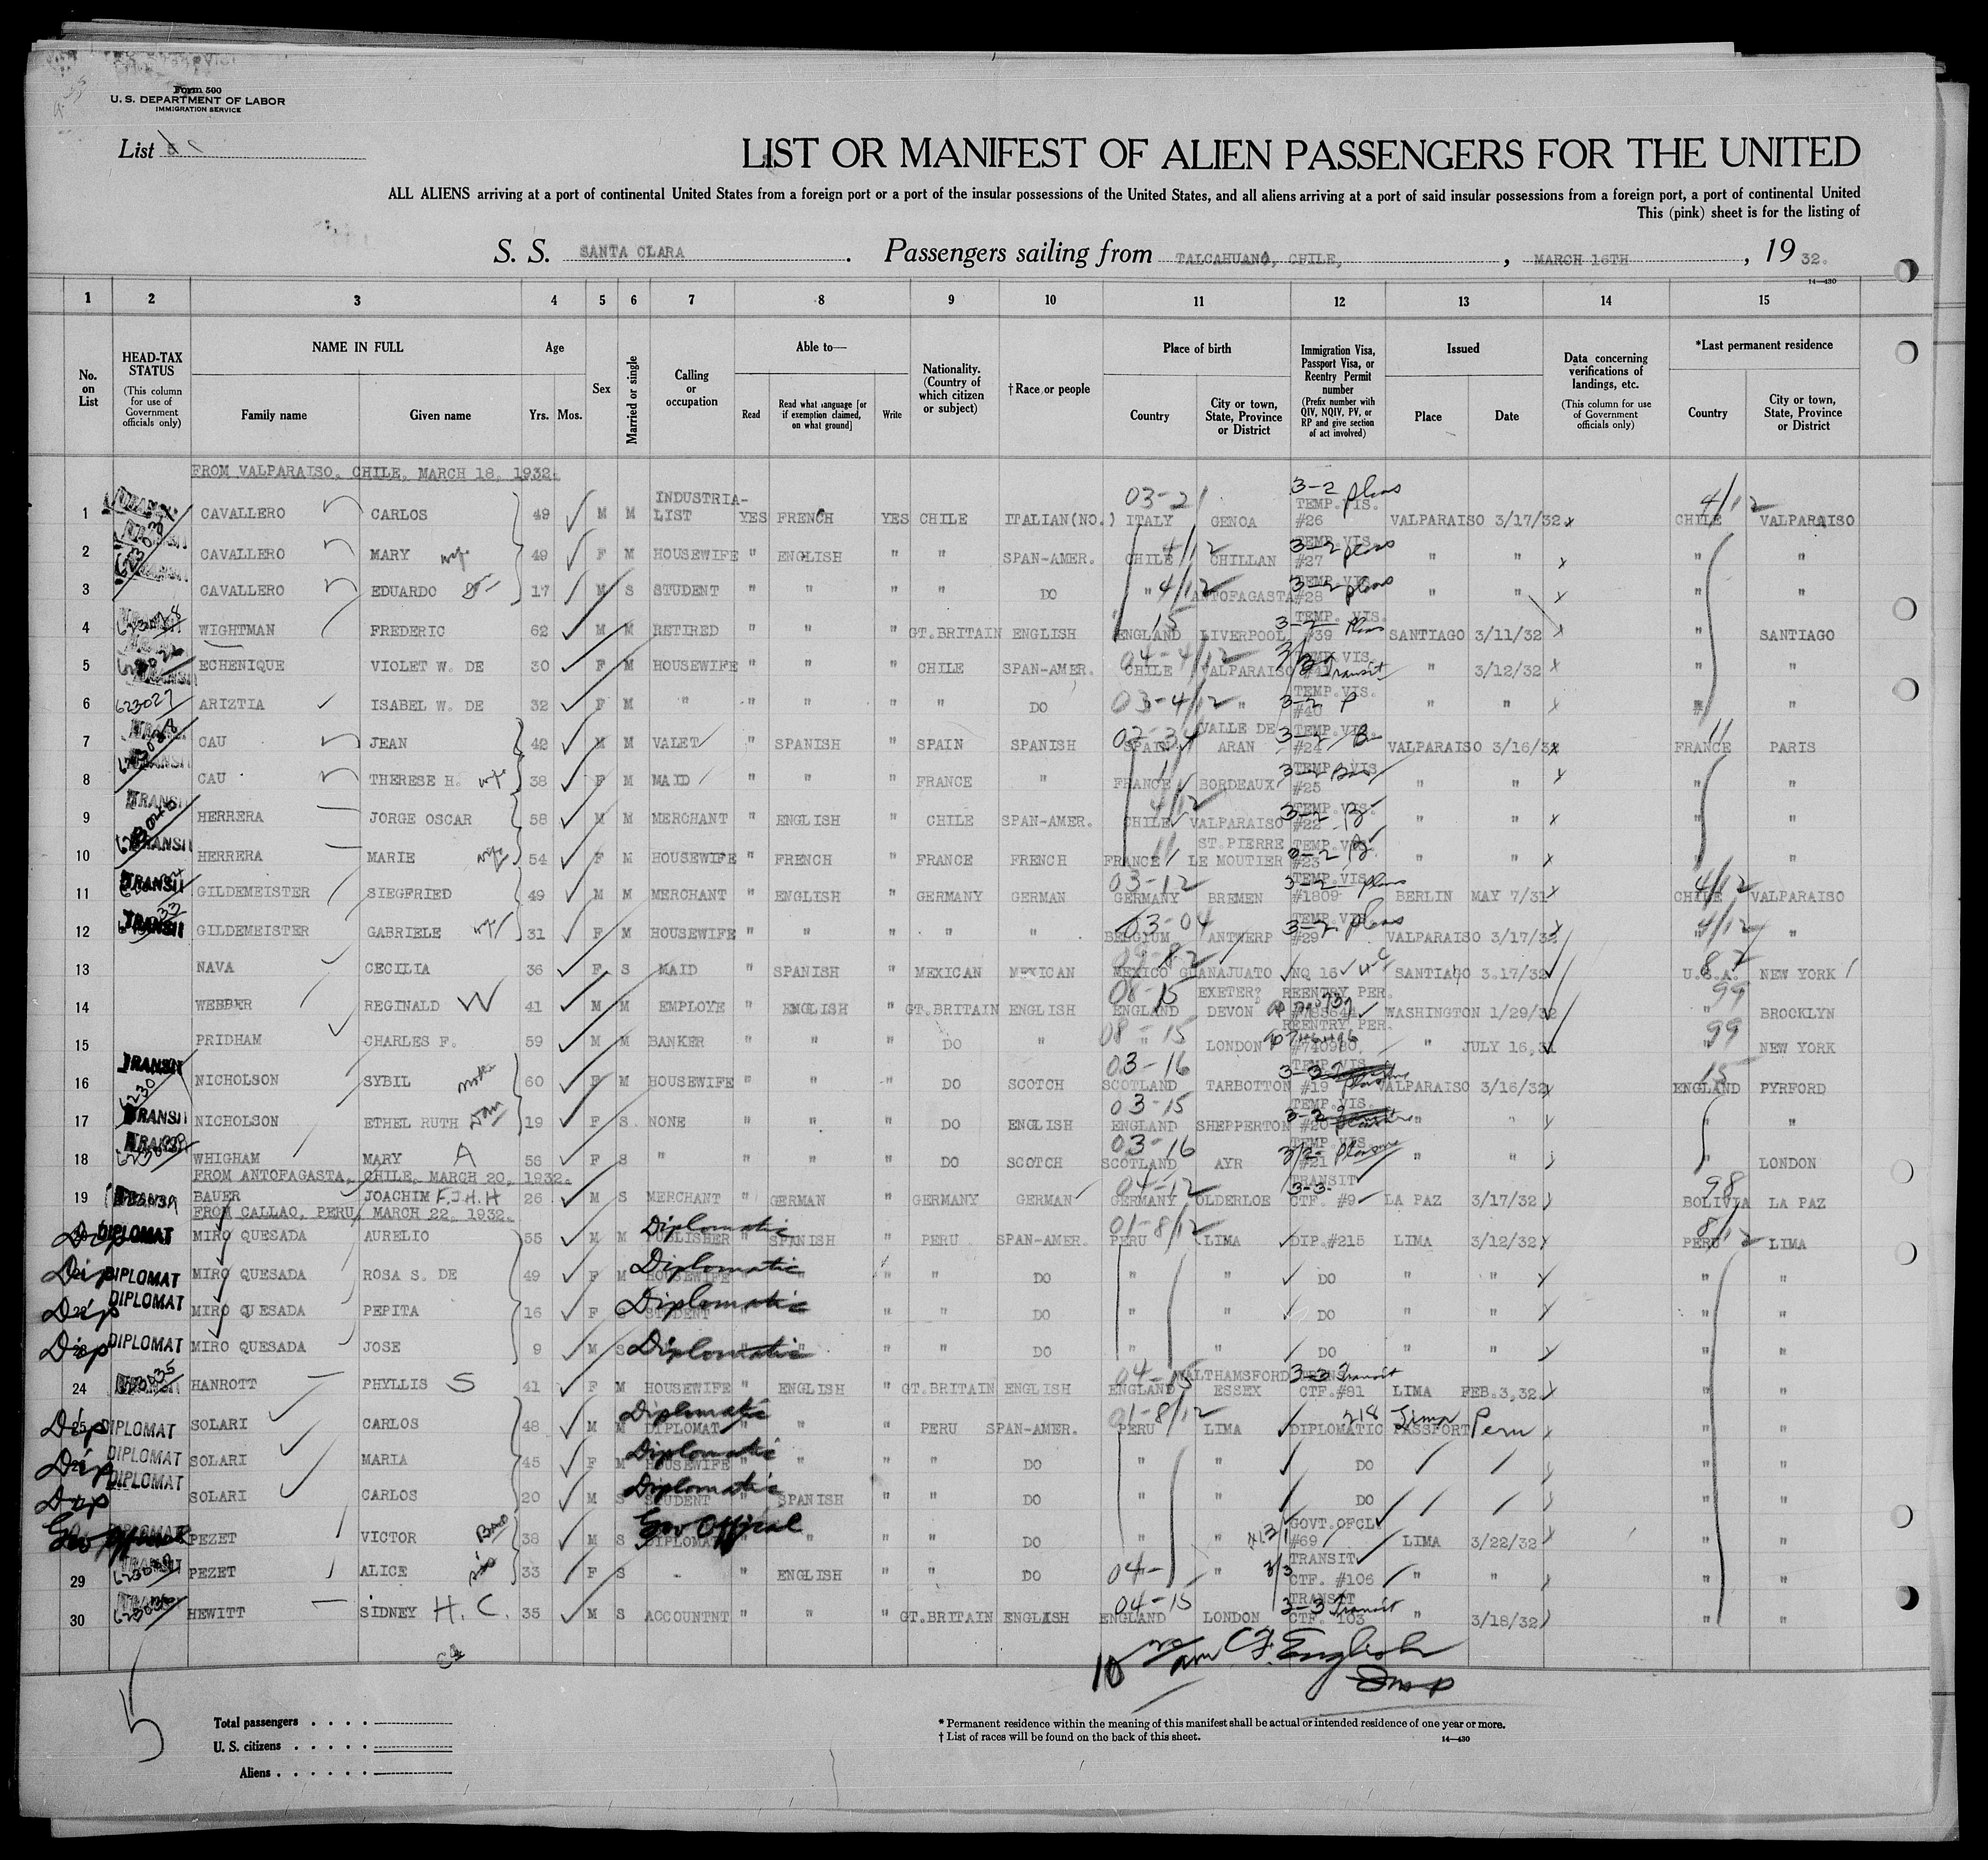 Form 500
U. S. DEPARTMENT OF LABOR
IMMIGRATION SERVICE
List
LIST OR MANIFEST OF ALIEN PASSENGERS FOR THE UNITED
ALL ALIENS arriving at a port of continental United States from a foreign port or a port of the insular possessions of the United States, and all aliens arriving at a port of said insular possessions from a foreign port, a port of continental United
This (pink) sheet is for the listing of
S. S. SANTA CLARA . Passengers sailing from TALCAHUANO, CHILE, , MARCH 16TH , 19 32.
14—430
1 2 3 4 5 6 7 8 9 10 11 12 13 14 15
No. on List
HEAD-TAX STATUS (This column for use of Government officials only)
NAME IN FULL
Family name Given name
Age
Yrs. Mos.
Sex
Married or single
Calling or occupation
Able to—
Read
Read what language [or if exemption claimed, on what ground]
Write
Nationality. (Country of which citizen or subject)
†Race or people
Place of birth
Country
City or town, State, Province or District
Immigration Visa, Passport Visa, or Reentry Permit number (Prefix number with QIV, NQIV, PV, or RP and give section of act involved)
Issued
Place Date
Data concerning verifications of landings, etc. (This column for use of Government officials only)
*Last permanent residence
Country
City or town, State, Province or District
FROM VALPARAISO, CHILE, MARCH 18, 1932.
1 CAVALLERO CARLOS 49 M M INDUSTRIA-LIST YES FRENCH YES CHILE ITALIAN(NO.) 03-21 ITALY GENOA 3-2 pleas TEMP.VIS. #26 VALPARAISO 3/17/32 4/12 CHILE VALPARAISO
2 CAVALLERO MARY wife 49 F M HOUSEWIFE " ENGLISH " " SPAN-AMER. CHILE 4/12 CHILLAN 3-2 pleas TEMP.VIS. #27 " " " "
3 CAVALLERO EDUARDO Son 17 M S STUDENT " " " " DO " 4/12 ANTOFAGASTA 3-2 pleas TEMP.VIS. #28 " " " "
4 WIGHTMAN FREDERIC 62 M M RETIRED " " " GT.BRITAIN ENGLISH 15 ENGLAND LIVERPOOL 3-2 pleas TEMP. VIS. #39 SANTIAGO 3/11/32 " SANTIAGO
5 ECHENIQUE VIOLET W. DE 30 F M HOUSEWIFE " " " CHILE SPAN-AMER. 04-4/12 CHILE VALPARAISO TEMP.VIS. Transit " 3/12/32 " "
6 623027 ARIZTIA ISABEL W. DE 32 F M " " " " " DO 03-4/12 " " TEMP.VIS. 3-2 P #40 " " " "
7 CAU JEAN 42 M M VALET " SPANISH " SPAIN SPANISH SPAIN VALLE DE ARAN 3-2 B TEMP.VIS. #24 VALPARAISO 3/16/32 11 FRANCE PARIS
8 CAU THERESE H. wife 38 F M MAID " " " FRANCE " 11 FRANCE BORDEAUX 3-2 Bus TEMP.VIS #25 " " " "
9 HERRERA JORGE OSCAR 58 M M MERCHANT " ENGLISH " CHILE SPAN-AMER. 4/12 CHILE VALPARAISO TEMP.VIS. 3-2 B #22 " " " "
10 TRANSIT HERRERA MARIE wife 54 F M HOUSEWIFE " FRENCH " FRANCE FRENCH 11 FRANCE ST.PIERRE LE MOUTIER TEMP.VIS. 3-2 B #23 " " " "
11 TRANSIT GILDEMEISTER SIEGFRIED 49 M M MERCHANT " ENGLISH " GERMANY GERMAN 03-12 GERMANY BREMEN TEMP.VIS. 3-2 pleas #1809 BERLIN MAY 7/31 4/12 CHILE VALPARAISO
12 TRANSIT GILDEMEISTER GABRIELE wife 31 F M HOUSEWIFE " " " " " 03-04 BELGIUM ANTWERP TEMP.VIS. 3-2 pleas #29 VALPARAISO 3/17/32 4/12 " "
13 NAVA CECILIA 36 F S MAID " SPANISH " MEXICAN MEXICAN MEXICO GUANAJUATO NQ 16 SANTIAGO 3.17/32 82 U.S.A. NEW YORK
14 WEBBER REGINALD W 41 M M EMPLOYE " ENGLISH " GT.BRITAIN ENGLISH 08-15 ENGLAND EXETER? DEVON REENTRY PER. WASHINGTON 1/29/32 99 " BROOKLYN
15 PRIDHAM CHARLES F. 59 M M BANKER " " " DO " 08-15 " LONDON REENTRY PER. #740980 " JULY 16,31 99 " NEW YORK
16 TRANSIT NICHOLSON SYBIL mother 60 F M HOUSEWIFE " " " DO SCOTCH 03-16 SCOTLAND TARBOTTON TEMP.VIS. 3-2 #19 VALPARAISO 3/16/32 15 ENGLAND PYRFORD
17 TRANSIT NICHOLSON ETHEL RUTH dau 19 F S NONE " " " DO ENGLISH 03-15 ENGLAND SHEPPERTON TEMP.VIS. 3-2 #20 " " " "
18 TRANSIT WHIGHAM MARY A 56 F S " " " " DO SCOTCH 03-16 SCOTLAND AYR TEMP.VIS. 3/2 Pleasure #21 " " " LONDON
FROM ANTOFAGASTA, CHILE, MARCH 20, 1932.
19 BAUER JOACHIM F.J.H.H 26 M S MERCHANT " GERMAN " GERMANY GERMAN 04-12 GERMANY OLDERLOE TRANSIT 3-3 CTF. #9 LA PAZ 3/17/32 98 BOLIVIA LA PAZ
FROM CALLAO, PERU, MARCH 22, 1932.
Dip DIPLOMAT MIRO QUESADA AURELIO 55 M M Diplomatic PUBLISHER " SPANISH " PERU SPAN-AMER. 01-8/12 PERU LIMA DIP.#215 LIMA 3/12/32 8/12 PERU LIMA
Dip DIPLOMAT MIRO QUESADA ROSA S. DE 49 F M Diplomatic HOUSEWIFE " " " " DO " " DO " " " "
Dip DIPLOMAT MIRO QUESADA PEPITA 16 F S Diplomatic STUDENT " " " DO " " DO " " " "
Dip DIPLOMAT MIRO QUESADA JOSE 9 M S Diplomatic " " " DO " " DO " " " "
24 HANROTT PHYLLIS S 41 F M HOUSEWIFE " ENGLISH " GT.BRITAIN ENGLISH 04-15 ENGLAND WALTHAMSFORD ESSEX 3-3 Transit CTF.#81 LIMA FEB.3,32. " "
25 Dip DIPLOMAT SOLARI CARLOS 48 M M Diplomatic DIPLOMAT " " " PERU SPAN-AMER. 01-8/12 PERU LIMA 218 Lima Peru DIPLOMATIC PASSPORT " "
Dip DIPLOMAT SOLARI MARIA 45 F M Diplomatic HOUSEWIFE " " " " DO " " DO " "
Dip DIPLOMAT SOLARI CARLOS 20 M S Diplomatic STUDENT " SPANISH " " DO " " DO " "
Gov Official DIPLOMAT PEZET VICTOR Bro 38 M S Gov Official DIPLOMAT " " " " DO " " GOVT.OFCL. #69 LIMA 3/22/32 " "
29 PEZET ALICE sis 33 F S " ENGLISH " " DO 04- " TRANSIT 3/3 CTF. #106 " " " "
30 HEWITT SIDNEY H. C. 35 M S ACCOUNTNT " " " GT.BRITAIN ENGLISH 04-15 ENGLAND LONDON TRANSIT 3-3 Transit CTF. 103 " 3/18/32 " "
10 am C.F. English
Insp
Total passengers . . . .
U. S. citizens . . . . .
Aliens . . . . . .
* Permanent residence within the meaning of this manifest shall be actual or intended residence of one year or more.
† List of races will be found on the back of this sheet.
14—430